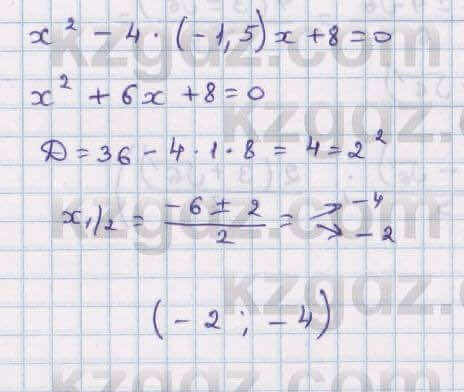 x² - 4 · (-1,5)x + 8 = 0
x² + 6x + 8 = 0
D = 36 - 4 · 1 · 8 = 4 = 2²
x₁/₂ = (-6 ± 2)/2 = → -4 → -2
(-2 ; -4)
kzgdz.com